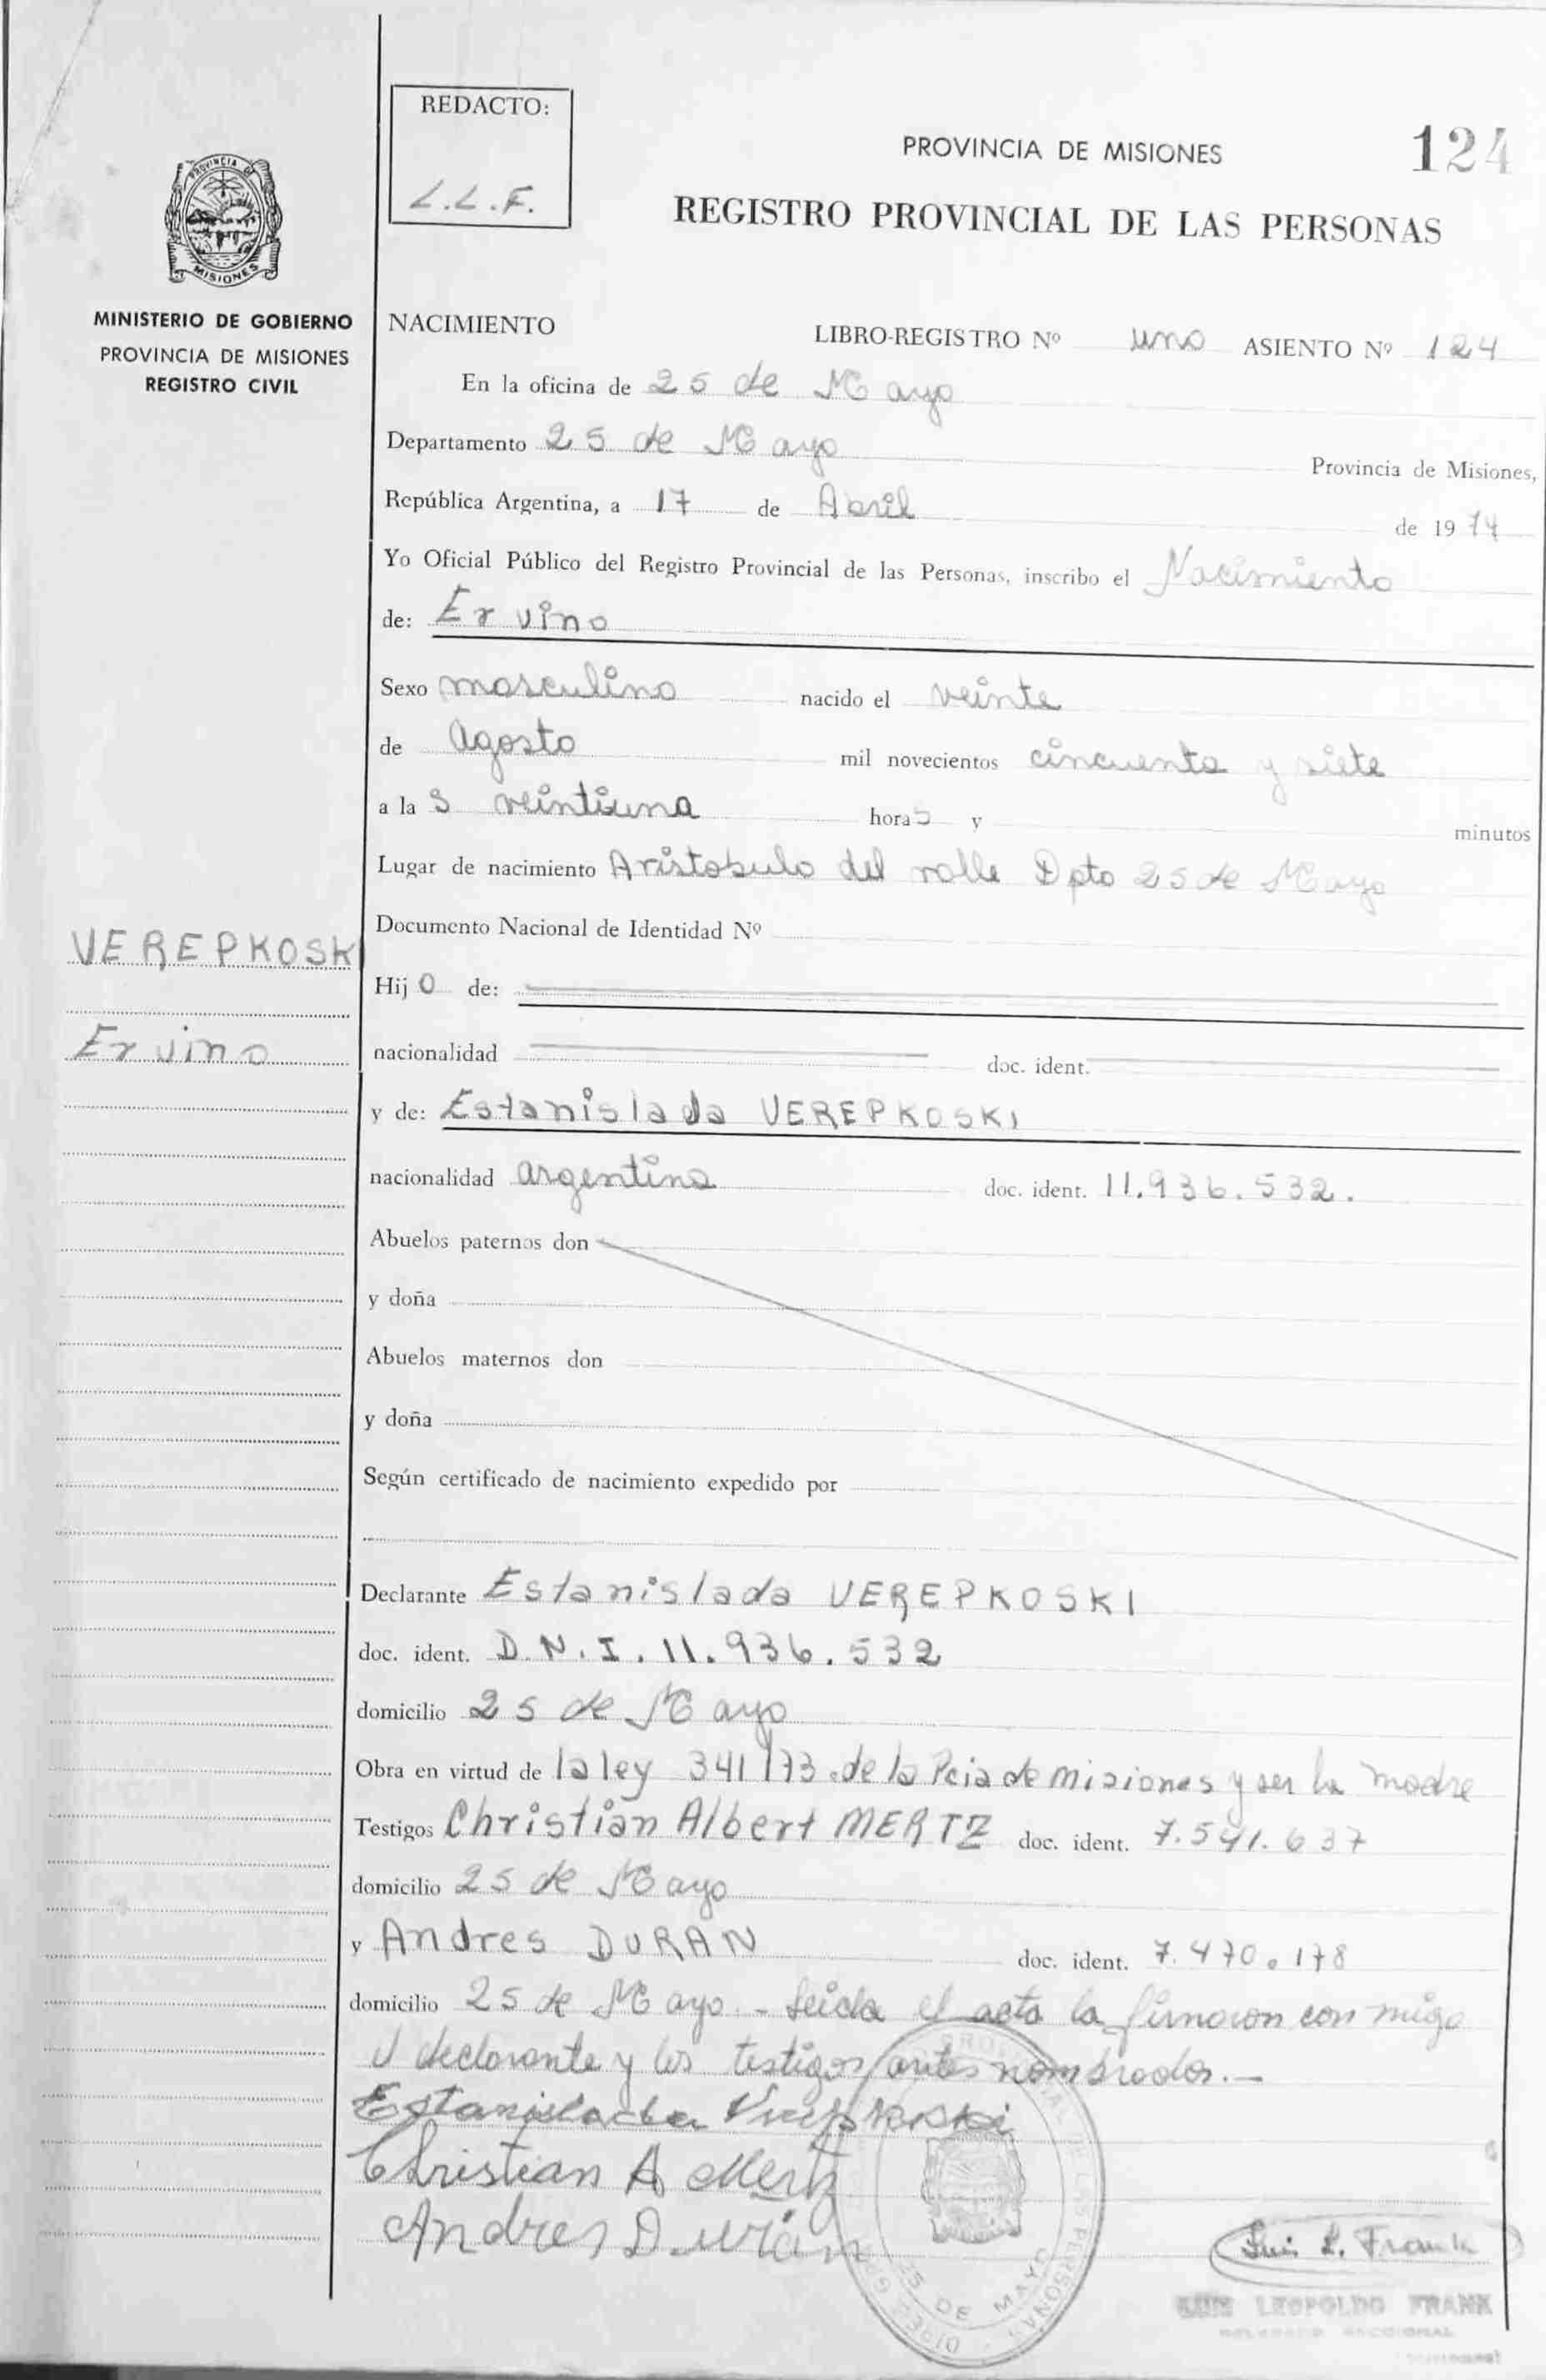 REDACTO:
L.L.F.
PROVINCIA DE MISIONES
124
REGISTRO PROVINCIAL DE LAS PERSONAS
PROVINCIA DE
MISIONES
MINISTERIO DE GOBIERNO
PROVINCIA DE MISIONES
REGISTRO CIVIL
NACIMIENTO LIBRO-REGISTRO Nº uno ASIENTO Nº 124
En la oficina de 25 de Mayo
Departamento 25 de Mayo Provincia de Misiones,
República Argentina, a 17 de Abril de 1974
Yo Oficial Público del Registro Provincial de las Personas, inscribo el Nacimiento
de: Ervino
Sexo masculino nacido el veinte
de agosto mil novecientos cincuenta y siete
a las veintiuna horas y minutos
Lugar de nacimiento Aristobulo del valle Dpto 25 de Mayo
Documento Nacional de Identidad Nº
VEREPKOSK
Hijo de:
Ervino
nacionalidad doc. ident.
y de: Estanislada VEREPKOSKI
nacionalidad argentina doc. ident. 11.936.532.
Abuelos paternos don
y doña
Abuelos maternos don
y doña
Según certificado de nacimiento expedido por
Declarante Estanislada VEREPKOSKI
doc. ident. D.N.I. 11.936.532
domicilio 25 de Mayo
Obra en virtud de la ley 341/73 de la Pcia de misiones y ser la madre
Testigos Christian Albert MERTZ doc. ident. 7.541.637
domicilio 25 de Mayo
y Andres DURAN doc. ident. 7.470.178
domicilio 25 de Mayo - Leida el acta la firmaron con migo
el declarante y los testigos antes nombrados.-
Estanislada Verepkoski
Christian A Mertz
Andres Durán
25 DE MAYO
Luis L. Frank
LUIS LEOPOLDO FRANK